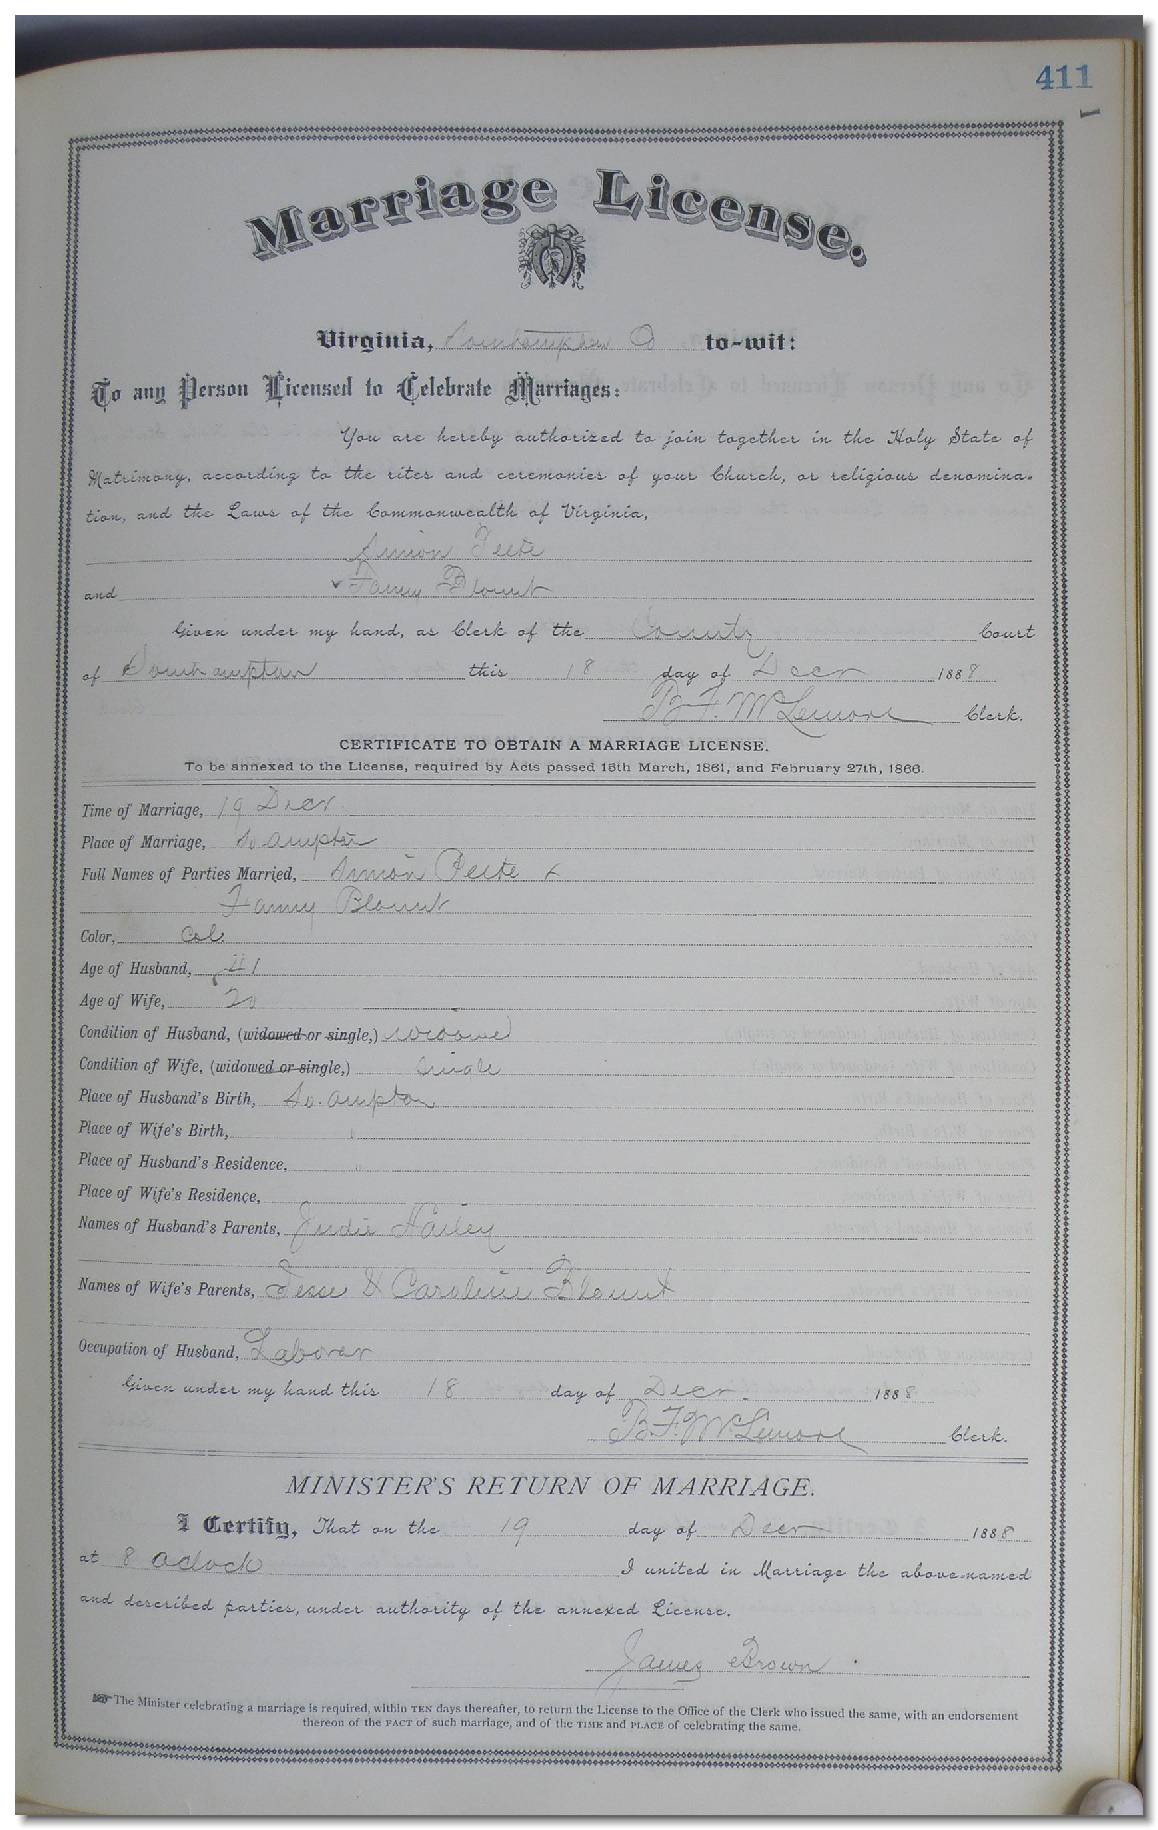 411
Marriage License.
Virginia, Southampton Co to-wit:
To any Person Licensed to Celebrate Marriages:
You are hereby authorized to join together in the Holy State of
Matrimony, according to the rites and ceremonies of your Church, or religious denomina-
tion, and the Laws of the Commonwealth of Virginia,
Simon Peete
and Fanny Blount
Given under my hand, as Clerk of the County Court
of Southampton this 18 day of Decr 1888
B. F. McLemore Clerk.
CERTIFICATE TO OBTAIN A MARRIAGE LICENSE.
To be annexed to the License, required by Acts passed 15th March, 1861, and February 27th, 1866.
Time of Marriage, 19 Decr
Place of Marriage, So.ampton
Full Names of Parties Married, Simon Peete &
Fanny Blount
Color, Col.
Age of Husband, 41
Age of Wife, 20
Condition of Husband, (widowed or single,) widowed
Condition of Wife, (widowed or single,) Single
Place of Husband's Birth, So.ampton
Place of Wife's Birth, "
Place of Husband's Residence, "
Place of Wife's Residence,
Names of Husband's Parents, Judie Hailey
Names of Wife's Parents, Jesse & Caroline Blount
Occupation of Husband, Laborer
Given under my hand this 18 day of Decr. 1888
B. F. McLemore Clerk.
MINISTER'S RETURN OF MARRIAGE.
I Certify, That on the 19 day of Decr 1888
at 8 oclock I united in Marriage the above-named
and described parties, under authority of the annexed License.
James Brown
The Minister celebrating a marriage is required, within TEN days thereafter, to return the License to the Office of the Clerk who issued the same, with an endorsement
thereon of the FACT of such marriage, and of the TIME and PLACE of celebrating the same.